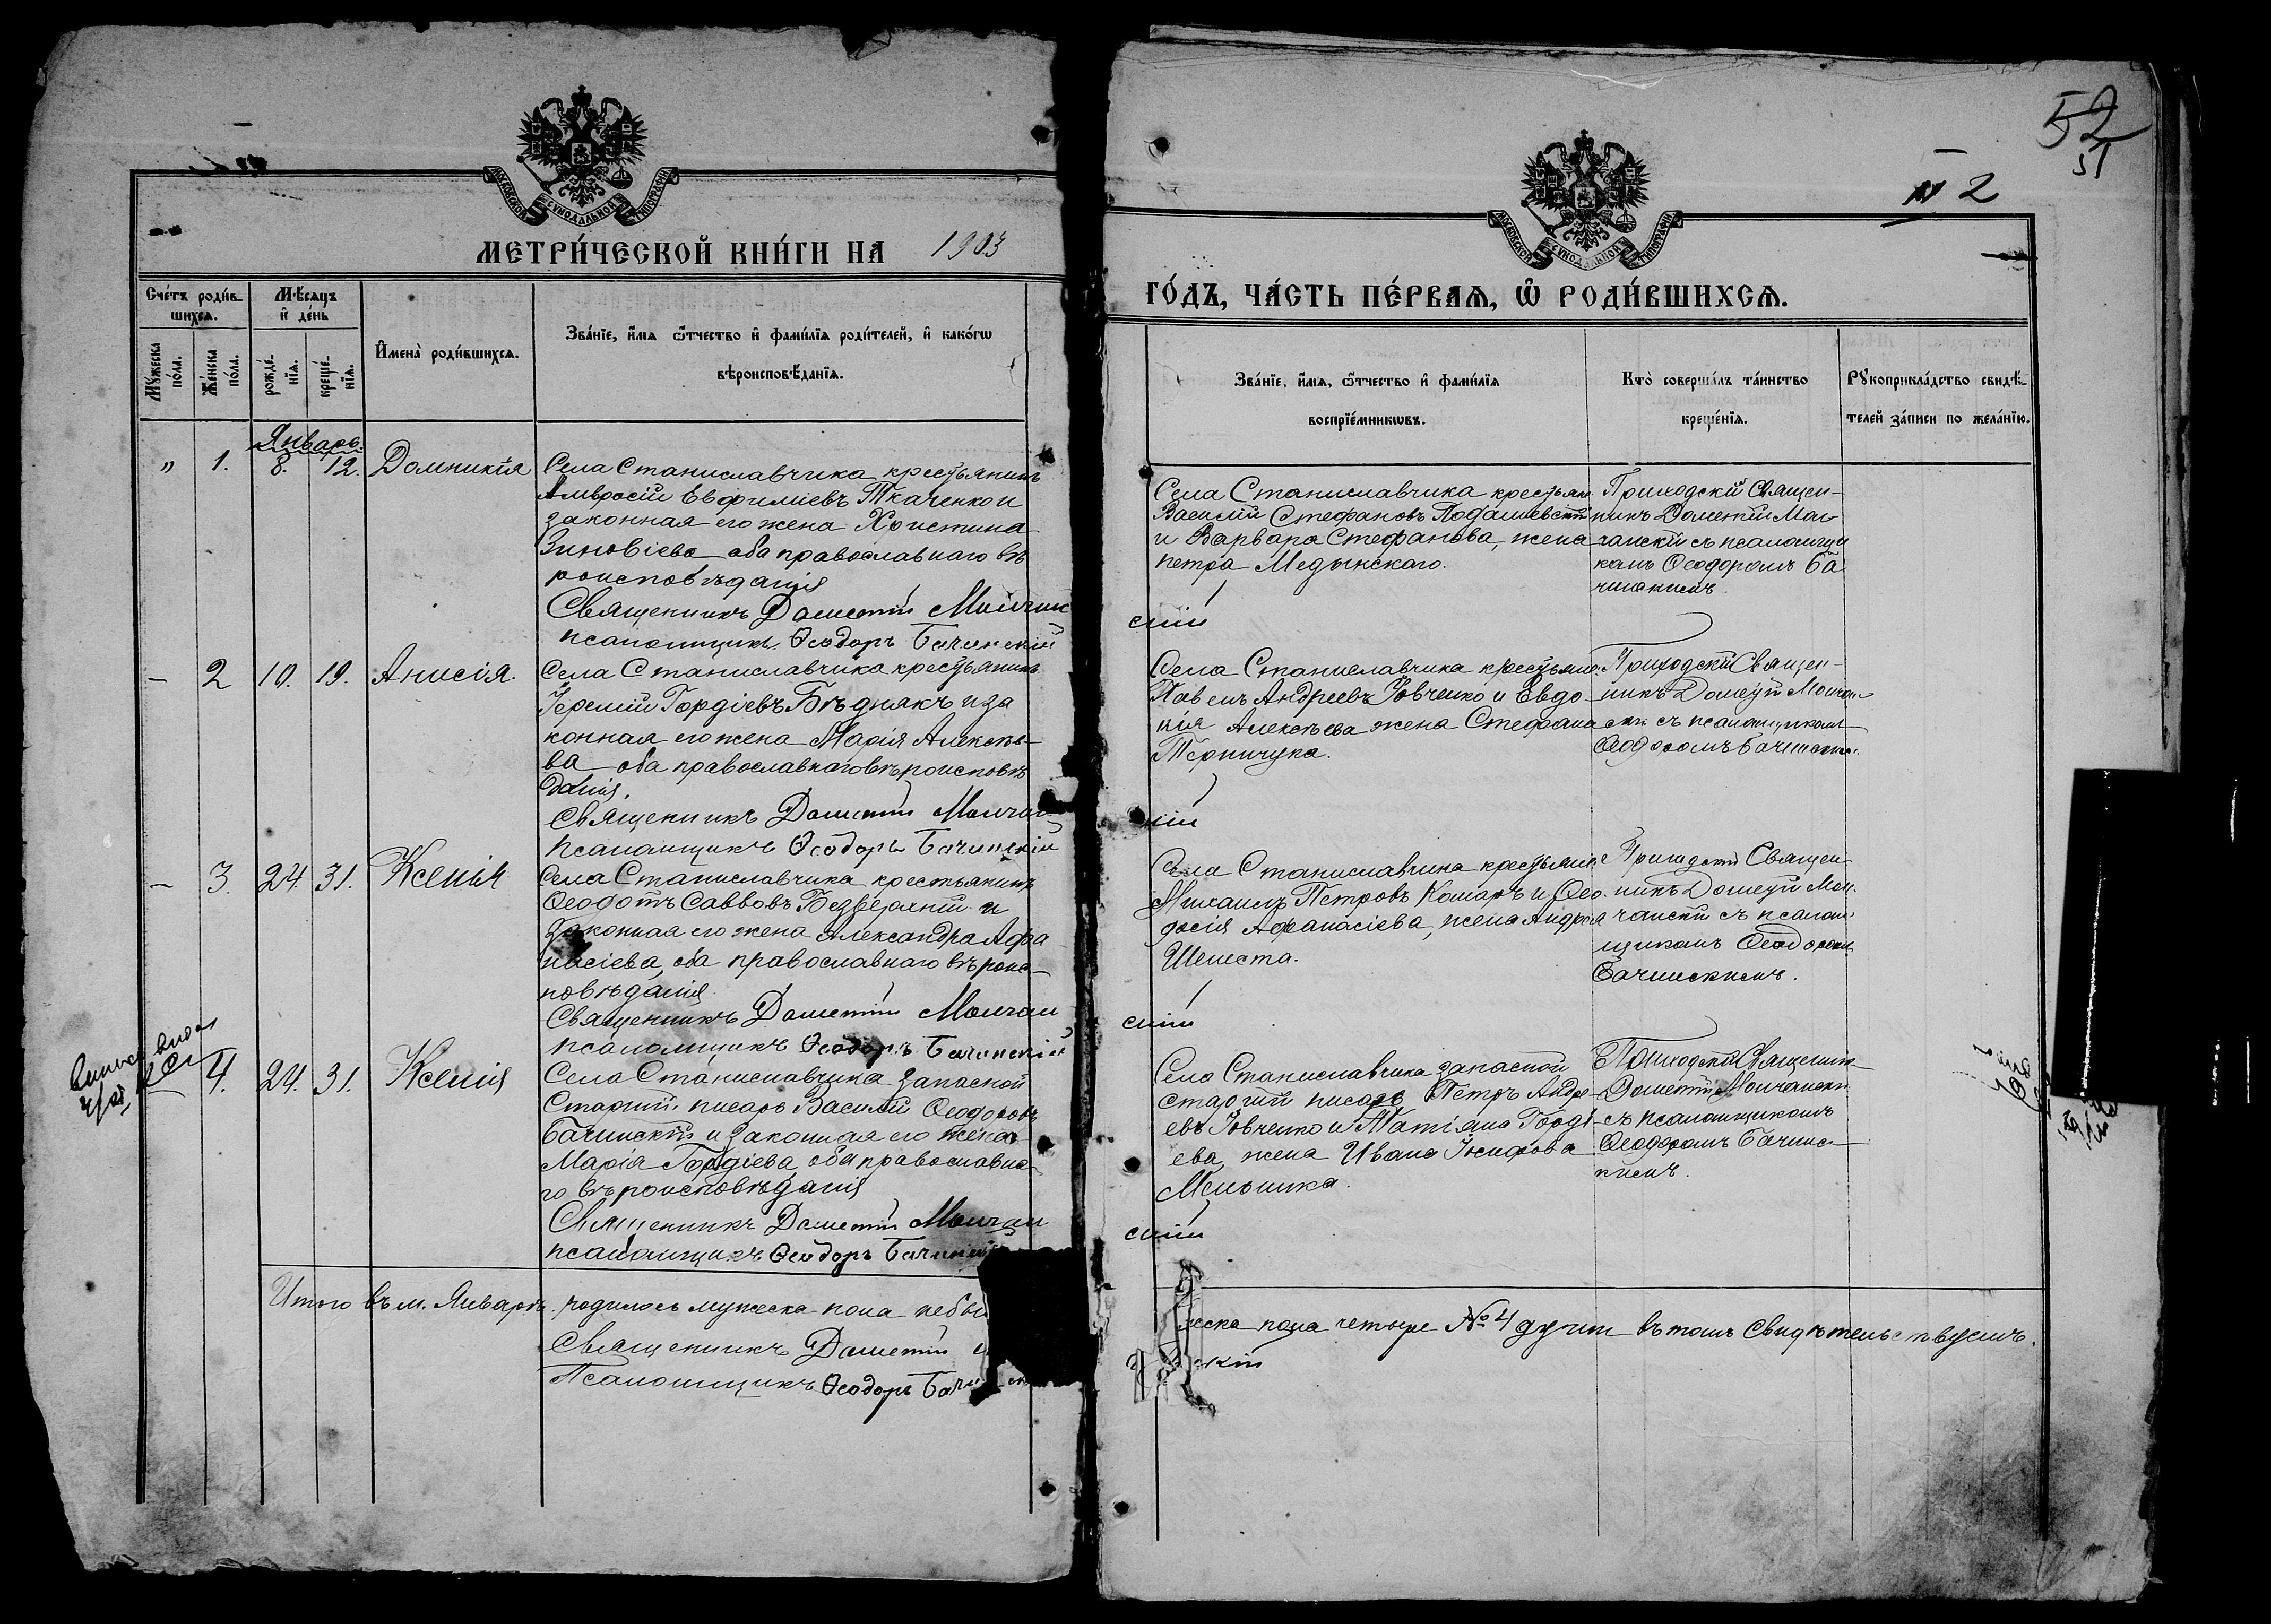 МОСКОВСКОЙ СѴНОДАЛЬНОЙ ТИПОГРАФІИ
МЕТРИ́ЧЕСКОЙ КНИ́ГИ НА 1903
Сче́тъ роди́в-
шихсѧ.
Мѣ́сѧцъ
и҆ де́нь
Мꙋ́жеска
по́ла.
Же́нска
по́ла.
рожде́-
нїѧ.
креще́-
нїѧ.
И҆мена̀ роди́вшихсѧ.
Зва́нїе, и҆́мѧ ѻ҆́тчество и҆ фами́лїѧ роди́телей, и҆ како́гѡ
вѣроисповѣ́данїѧ.
Январь
„ 1. 8. 12. Домникія
Села Станиславчика крестьянинъ
Амвросій Евфиміевъ Ткаченко и
законная его жена Христина
Зиновіева оба православнаго вѣ
роисповѣданія
Священникъ Дометій Молчан
псаломщикъ Ѳеодоръ Бачинскій
— 2 10. 19. Анисія.
Села Станиславчика крестьянинъ
Іеремій Гордіевъ Бѣднякъ и за
конная его жена Марія Алексѣе-
ва оба православнаго вѣроисповѣ
данія.
Священникъ Дометій Молчан
Псаломщикъ Ѳеодоръ Бачинскій
— 3. 24. 31. Ксенія
Села Станиславчика крестьянинъ
Ѳеодотъ Саввовъ Безверхній и
законная его жена Александра Афа
насіева, оба православнаго вѣроис-
повѣданія
Священникъ Дометій Молчан
псаломщикъ Ѳеодоръ Бачинскій
— 4. 24. 31. Ксенія
Села Станиславчика запасной
Старшій писарь Василій Ѳеодоровъ
Бачинскій и законная его жена
Марія Гордіева, оба православна-
го вѣроисповѣданія
Священникъ Дометій Молчан
псаломщикъ Ѳеодоръ Бачинскій
Итого въ м. Январѣ родилось мужеска пола небы
Священникъ Дометій
Псаломщикъ Ѳеодоръ
52
51
2
МОСКОВСКОЙ СѴНОДАЛЬНОЙ ТИПОГРАФІИ
ГО́ДЪ, ЧА́СТЬ ПЕ́РВАѦ, Ѡ҆ РОДИ́ВШИХСѦ.
Зва́нїе, и҆́мѧ, ѻ҆́тчество и҆ фами́лїѧ
воспрїе́мникѡвъ.
Кто̀ соверша́лъ та́инство
креще́нїѧ.
Рꙋкоприкла́дство свидѣ́-
телей за́писи по жела́нїю.
Села Станиславчика крестьян
Василій Стефановъ Подашевскій
и Варвара Стефанова, жена
петра Медынскаго.
Приходскій Священ-
никъ Дометій Мол-
чанскій съ псаломщи
комъ Ѳеодоромъ Ба
чинскимъ.
скій
Села Станиславчика крестьян
Павелъ Андреевъ Іовченко и Евдо-
кія Алексѣева жена Стефана
Терничука.
Приходскій Священ-
никъ Дометій Молчан
скій съ псаломщикомъ
Ѳеодоромъ Бачинским.
скій
Села Станиславчика крестьяне
Михаилъ Петровъ Комаръ и Ѳео-
досія Афанасіева, жена Андрея
Шепета.
Приходскій Священ
никъ Дометій Мол-
чанскій съ псалом
щикомъ Ѳеодоромъ
Бачинскимъ.
скій
Села Станиславчика запасной
старшій писарь Петръ Андре-
евъ Іовченко и Татіана Горді-
ева, жена Ивана Іосифова
Мельника.
Приходскій Священник
Дометій Молчанскій
съ псаломщикомъ
Ѳеодоромъ Бачинс-
кимъ.
скій
женска пола четыре № 4 души въ томъ Свидѣтельствуемъ.
скій